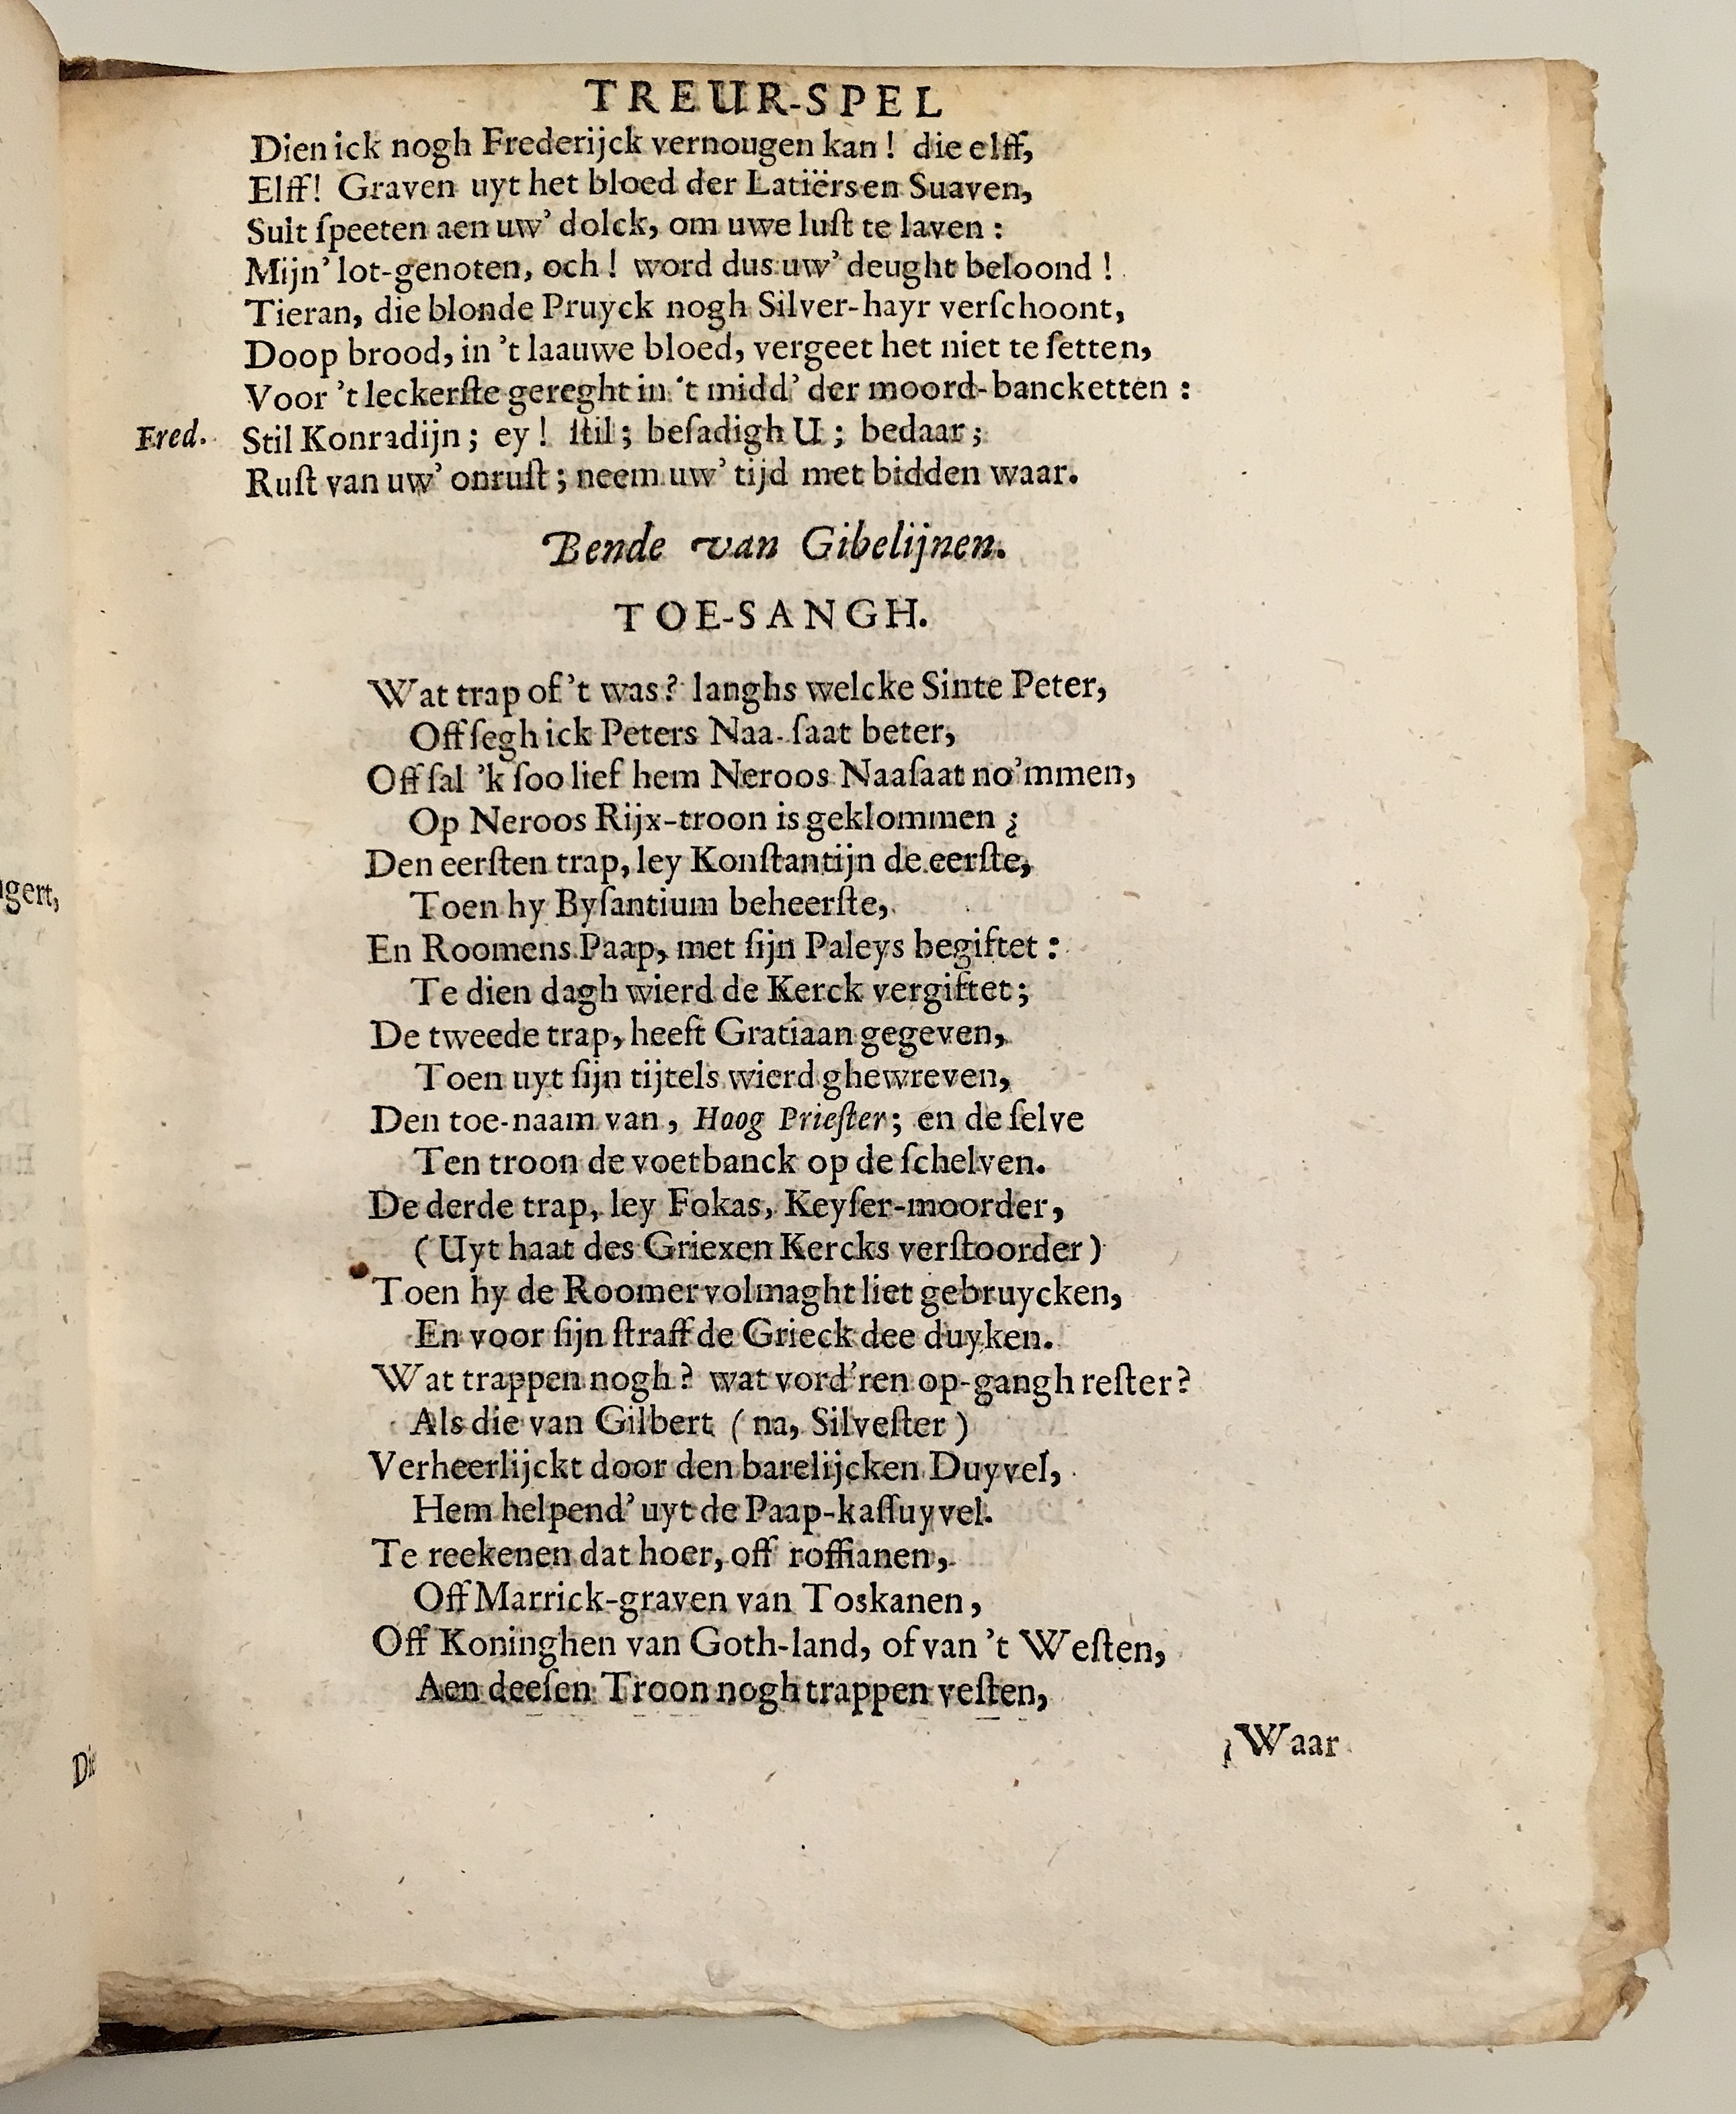 TREUR-SPEL
Dien ick nogh Frederijck vernougen kan! die elff,
Elff! Graven uyt het bloed der Latiërs en Suaven,
Sult ſpeeten aen uw' dolck, om uwe luſt te laven:
Mijn' lot-genoten, och! word dus uw' deught beloond!
Tieran, die blonde Pruyck nogh Silver-hayr verſchoont,
Doop brood, in 't laauwe bloed, vergeet het niet te ſetten,
Voor 't leckerſte gereght in 't midd' der moord-bancketten:
Fred. Stil Konradijn; ey! ſtil; beſadigh U; bedaar;
Ruſt van uw' onruſt; neem uw' tijd met bidden waar.
Bende van Gibelijnen.
TOE-SANGH.
Wat trap of 't was? langhs welcke Sinte Peter,
Off ſegh ick Peters Naa-ſaat beter,
Off ſal 'k ſoo lief hem Neroos Naaſaat no'mmen,
Op Neroos Rijx-troon is geklommen ¿
Den eerſten trap, ley Konſtantijn de eerſte,
Toen hy Byſantium beheerſte,
En Roomens Paap, met ſijn Paleys begiftet:
Te dien dagh wierd de Kerck vergiftet;
De tweede trap, heeft Gratiaan gegeven,
Toen uyt ſijn tijtels wierd ghewreven,
Den toe-naam van, Hoog Prieſter; en de ſelve
Ten troon de voetbanck op de ſchelven.
De derde trap, ley Fokas, Keyſer-moorder,
(Uyt haat des Griexen Kercks verſtoorder)
Toen hy de Roomer volmaght liet gebruycken,
En voor ſijn ſtraff de Grieck dee duyken.
Wat trappen nogh? wat vord'ren op-gangh reſter?
Als die van Gilbert (na, Silveſter)
Verheerlijckt door den barelijcken Duyvel,
Hem helpend' uyt de Paap-kaſſuyvel.
Te reekenen dat hoer, off roffianen,
Off Marrick-graven van Toskanen,
Off Koninghen van Goth-land, of van 't Weſten,
Aen deeſen Troon nogh trappen veſten,
¿Waar
gert,
Die